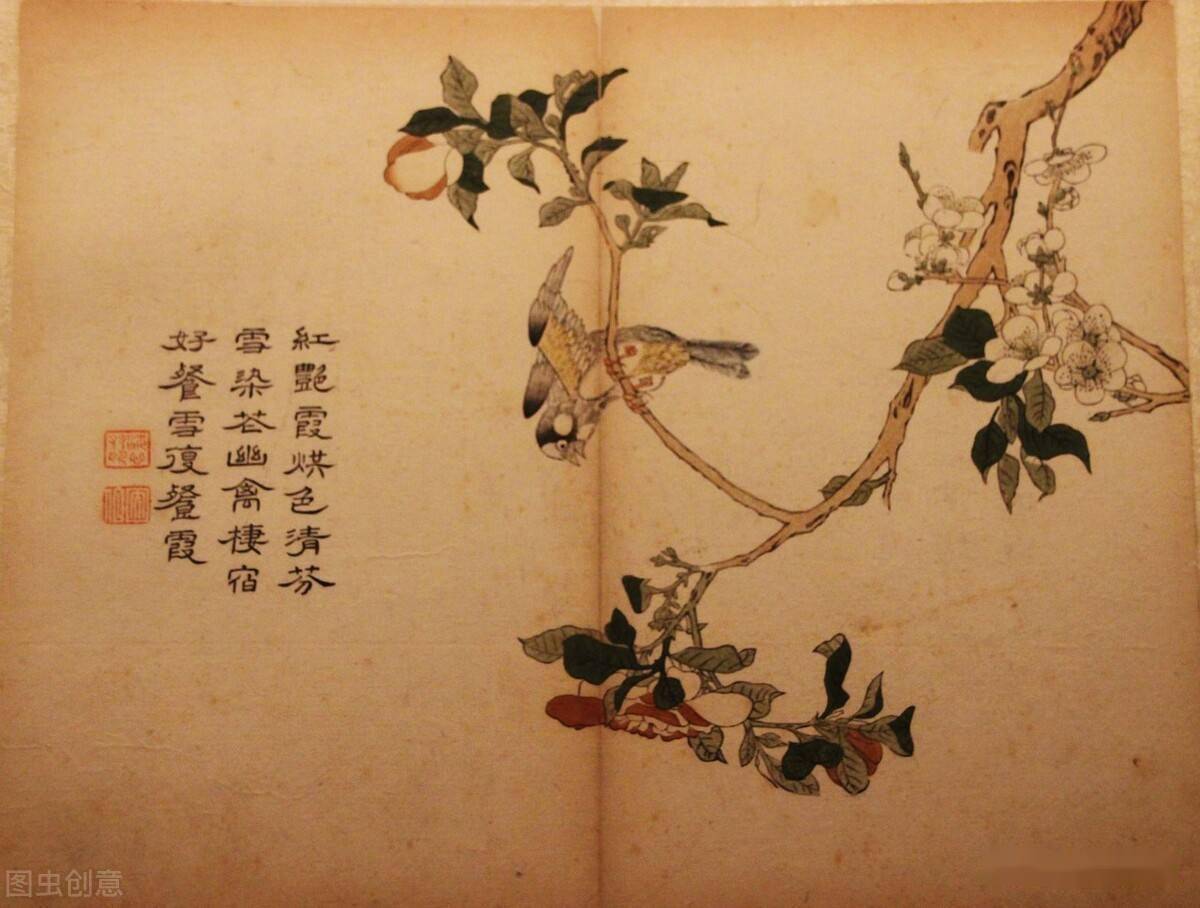 紅艷霞烘色清芬
雪染花幽禽棲宿
好餐雪復餐霞
图虫创意